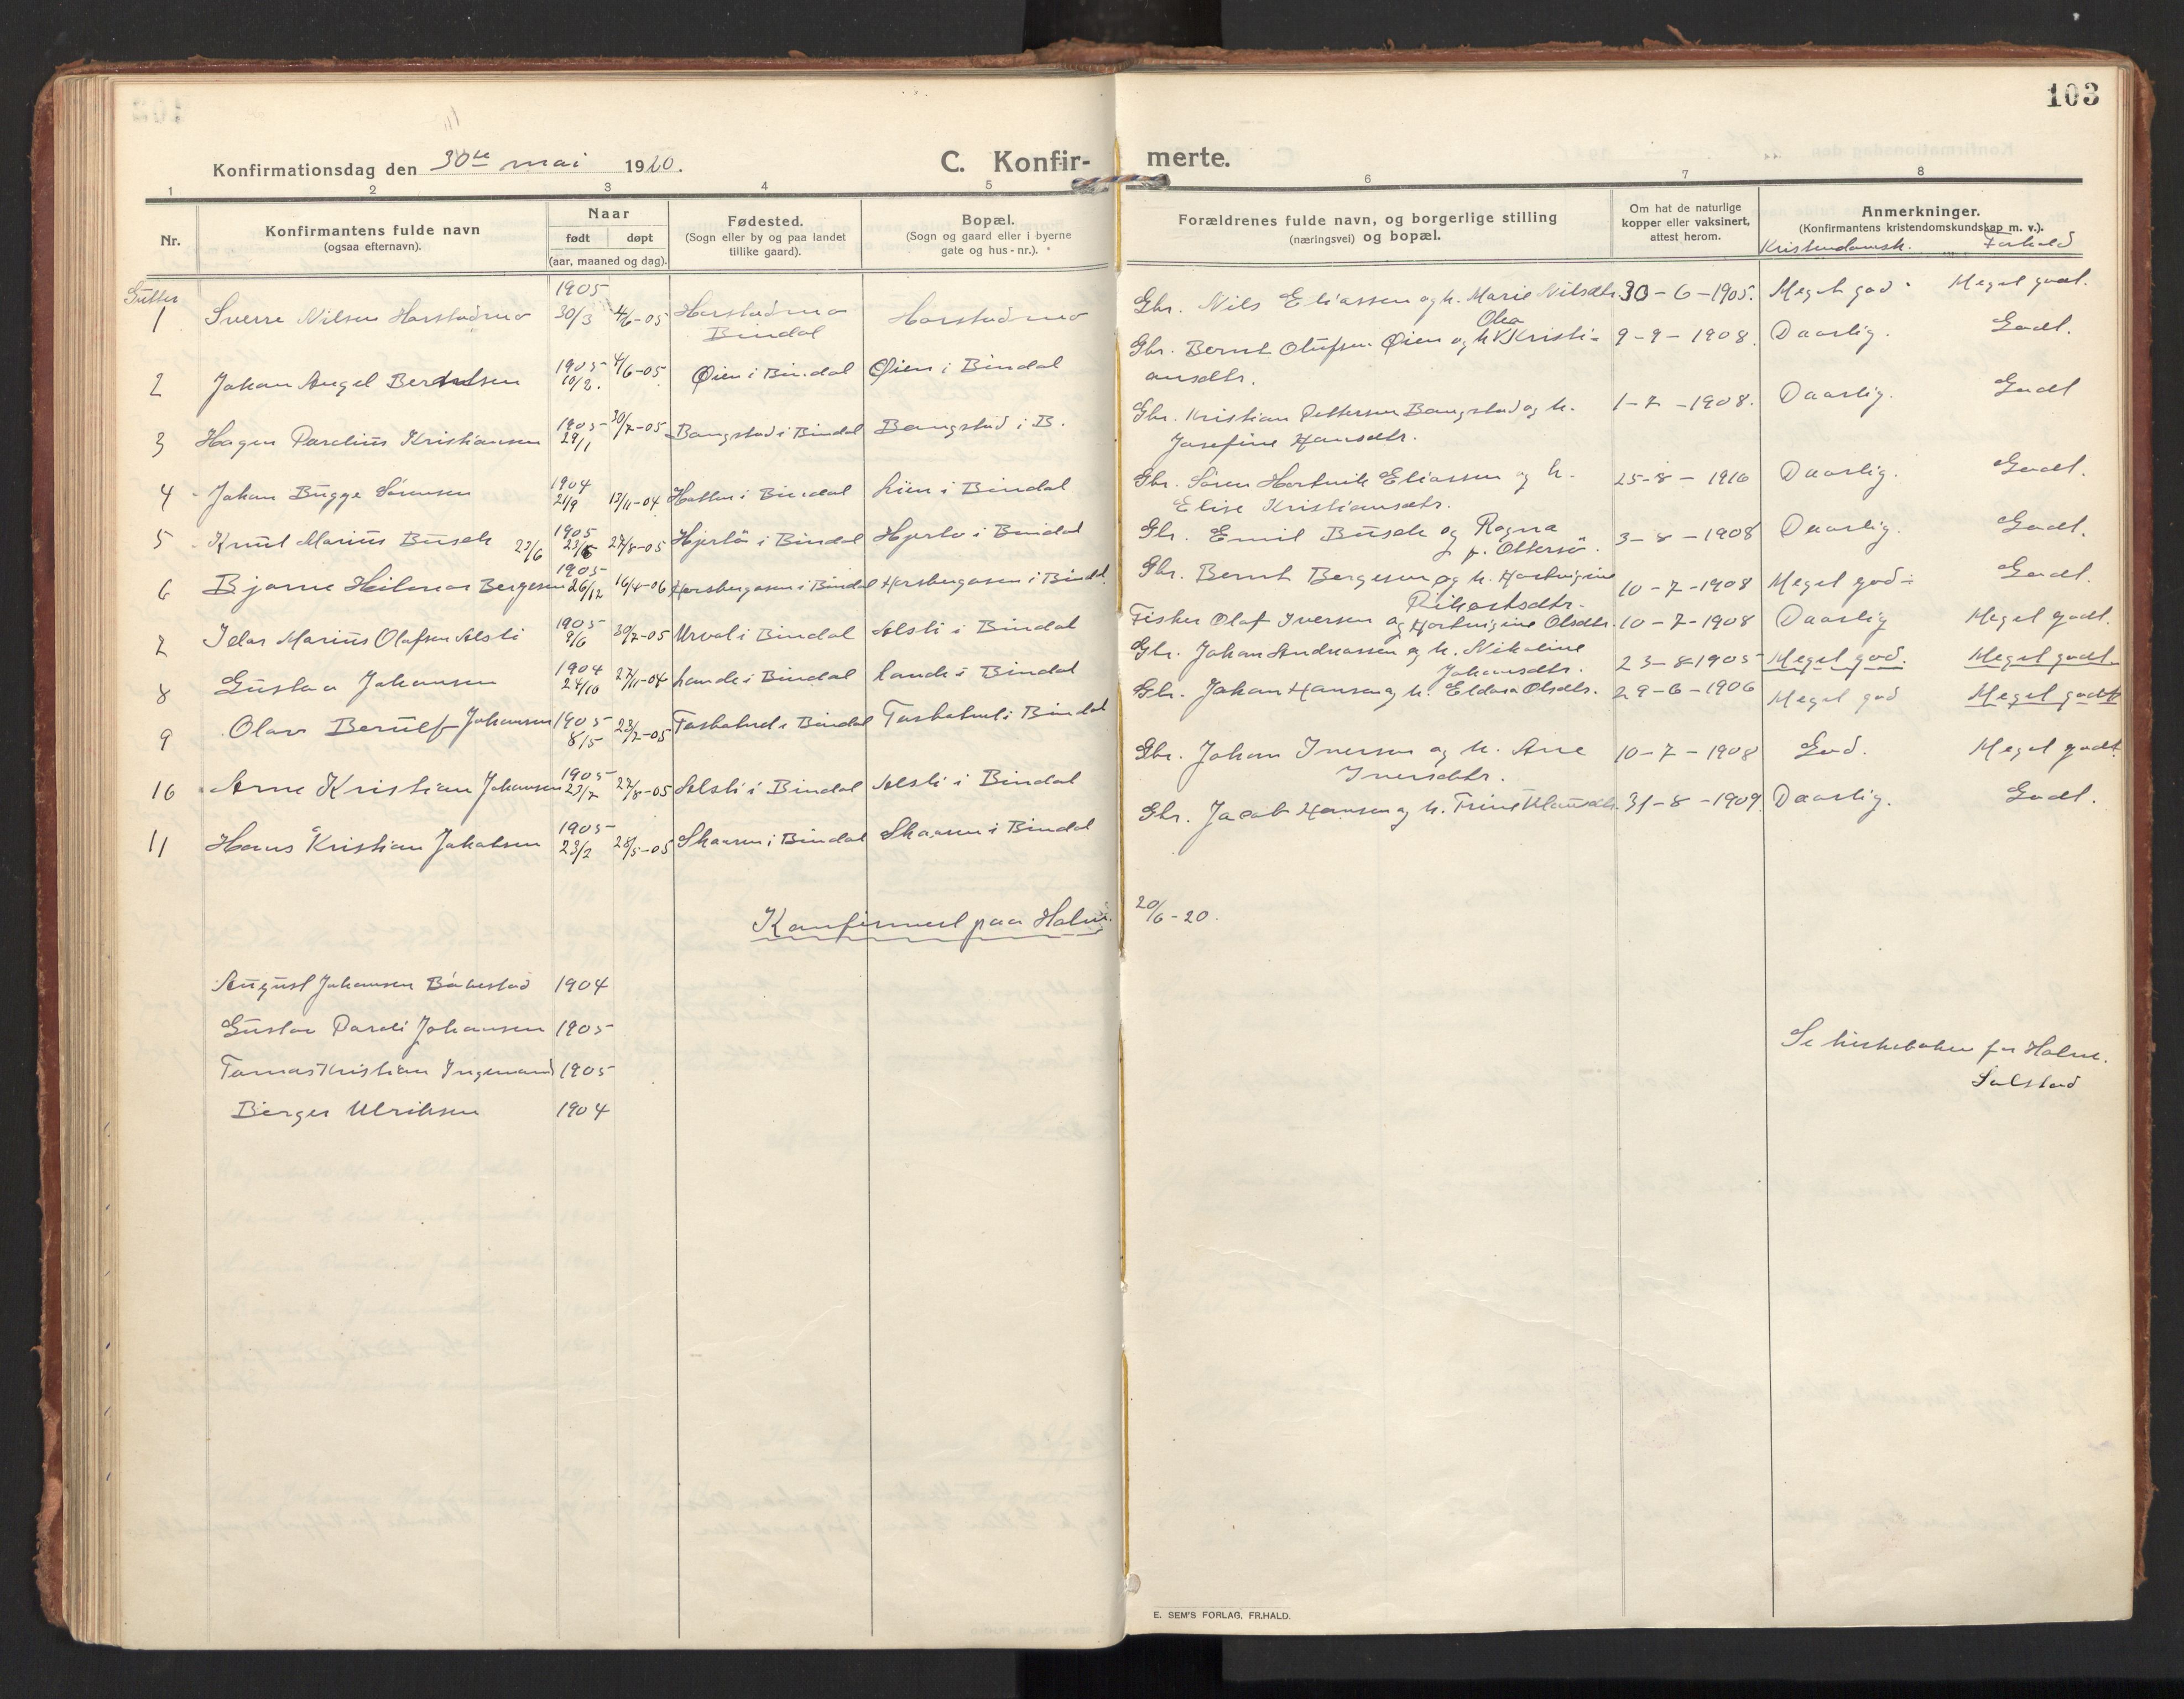 103
Konfirmationsdag den 30te mai 1920.
C. Konfir- merte.
1 2 3 4 5 6 7 8
Nr.
Konfirmantens fulde navn
(ogsaa efternavn).
Naar
født døpt
(aar, maaned og dag).
Fødested.
(Sogn eller by og paa landet
tillike gaard).
Bopæl.
(Sogn og gaard eller i byerne
gate og hus-nr.).
Forældrenes fulde navn, og borgerlige stilling
(næringsvei) og bopæl.
Om hat de naturlige
kopper eller vaksinert,
attest herom.
Anmerkninger.
(Konfirmantens kristendomskundskap m. v.).
Kristendomsk. Forhold
Gutter
1 Sverre Nilsen Horstadmo 1905 30/3 4/6-05 Horstadmo Bindal Horstadmo Gbr. Nils Eliassen og h. Marie Nilsdtr. 30-6-1905. Meget god. Meget godt.
2 Johan Angel Berntsen 1905 10/2. 4/6-05. Øien i Bindal Øien i Bindal Gbr. Bernt Olufsen Øien og h. Olea Kristi-
ansdtr. 9-9-1908. Daarlig. Godt.
3 Hagen Parelius Kristiansen 1905 29/1 30/7-05 Bangstad i Bindal Bangstad i B. Gbr. Kristian Pettersen Bangstad og h.
Josefine Hansdtr. 1-7-1908. Daarlig. Godt
4 Johan Bugge Sørensen 1904 21/9 13/11-04 Hatten i Bindal Lien i Bindal Gbr. Søren Hartvik Eliassen og h.
Elise Kristiansdtr. 25-8-1910 Daarlig. Godt.
5 Knut Marius Busch 23/6 1905 23/6 27/8-05 Hjertø i Bindal Hjertø i Bindal Gbr. Emil Busch og Ragna
f. Ottersø. 3-8-1908 Daarlig. Godt.
6 Bjarne Heilmar Bergesen 1905 26/12 16/4-06 Horsbergaasen i Bindal Horsbergaasen i Bindal Gbr. Bernt Bergesen og h. Hartvigine
Rikartsdtr. 10-7-1908 Meget god Godt.
7 Idar Marius Olafsen Alsli 1905 9/6 30/7-05 Urvol i Bindal Alsli i Bindal Fisker Olaf Iversen og Hartvigine Olsdtr. 10-7-1908 Daarlig Meget godt.
8 Gustav Johansen 1904 24/10 27/11-04 Lande i Bindal Lande i Bindal Gbr. Johan Andreassen og h. Nikoline
Johansdtr. 23-8-1905 Meget god. Meget godt.
9 Olav Berulf Johansen 1905 8/5 23/7-05 Taskebud i Bindal Taskebud i Bindal Gbr. Johan Hansen og h. Eldara Olsdtr. 29-6-1906 Meget god Meget godt
10 Arne Kristian Johansen 1905 23/7 27/8-05 Alsli i Bindal Alsli i Bindal Gbr. Johan Iversen og h. Ane
Iversdtr. 10-7-1908 God. Meget godt.
11 Hans Kristian Jakobsen 1905 23/2 28/5-05 Skaaren i Bindal Skaaren i Bindal Gbr. Jacob Hansen og h. Trine 31-8-1909. Daarlig. Godt.
Konfirmert paa Holm. 20/6-20.
August Johansen Bøkestad 1904
Gustav Pareli Johansen 1905
Tomas Kristian Ingemand 1905
Berger Ulriksen 1904
Se kirkeboken for Holm.
Salstad
E. SEM'S FORLAG, FR.HALD.